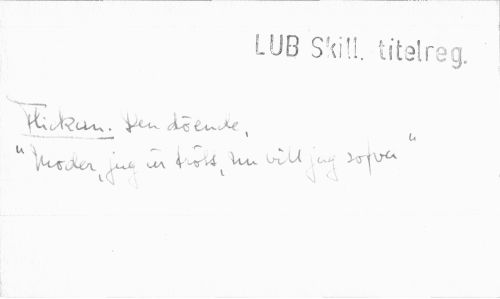 LUB Skill. titelreg.
Flickan. Den döende,
"Moder, jag är trött, nu vill jag sofva"